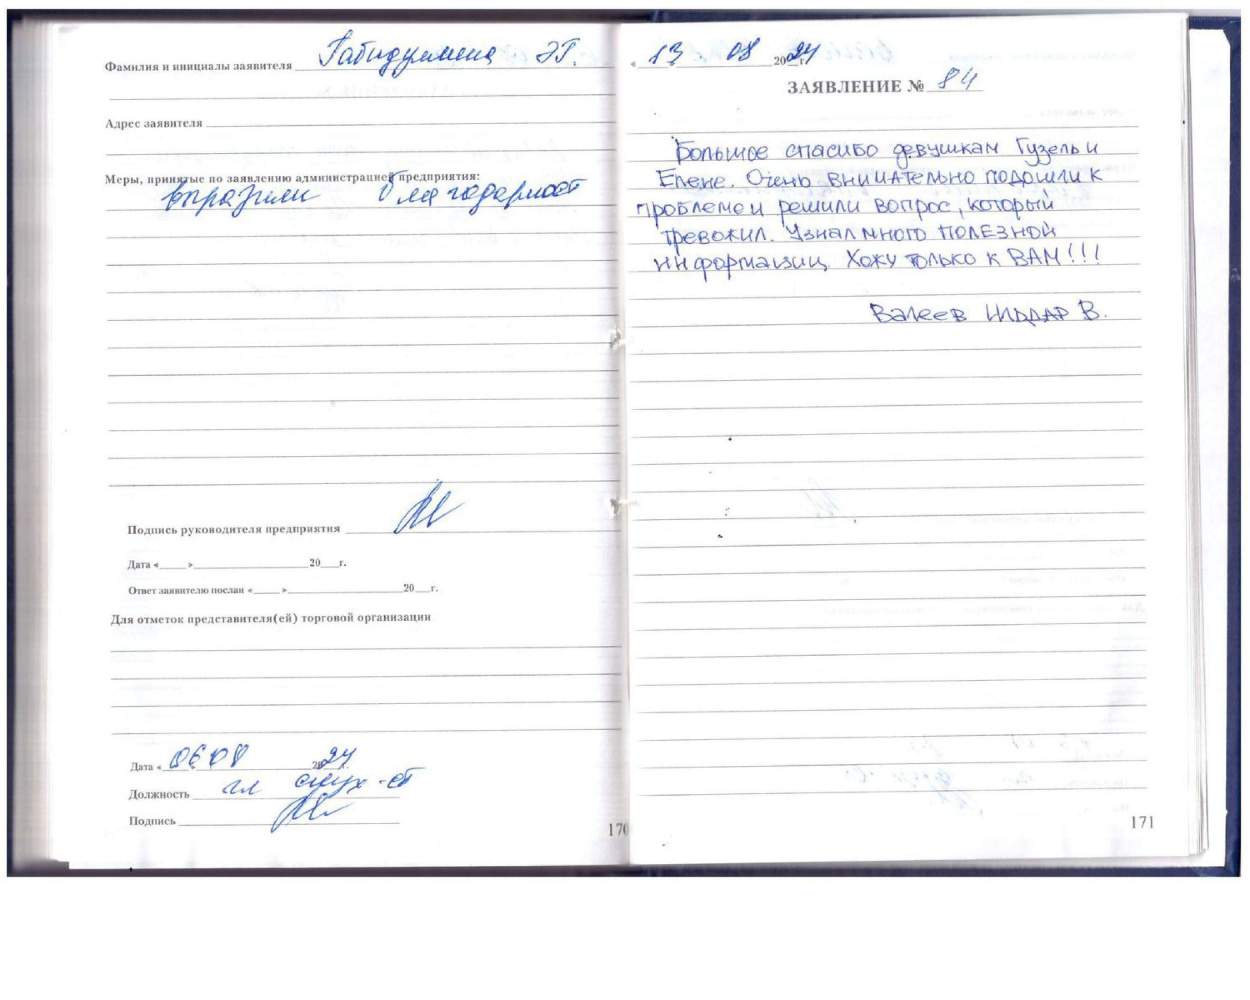 Фамилия и инициалы заявителя Габидуллина Э.Г.
Адрес заявителя
Меры, принятые по заявлению администрацией предприятия:
выразили благодарност
Подпись руководителя предприятия
Дата «____»____________20___г.
Ответ заявителю послан «____»____________20___г.
Для отметок представителя(ей) торговой организации
Дата « 06 08 2024
Должность гл
Подпись
170
« 13 08 2024 г.
ЗАЯВЛЕНИЕ № 84
Большое спасибо девушкам Гузель и
Елене. Очень внимательно подошли к
проблеме и решили вопрос, который
тревожил. Узнал много полезной
информации. Хожу только к ВАМ!!!
Валеев Илдар В.
171